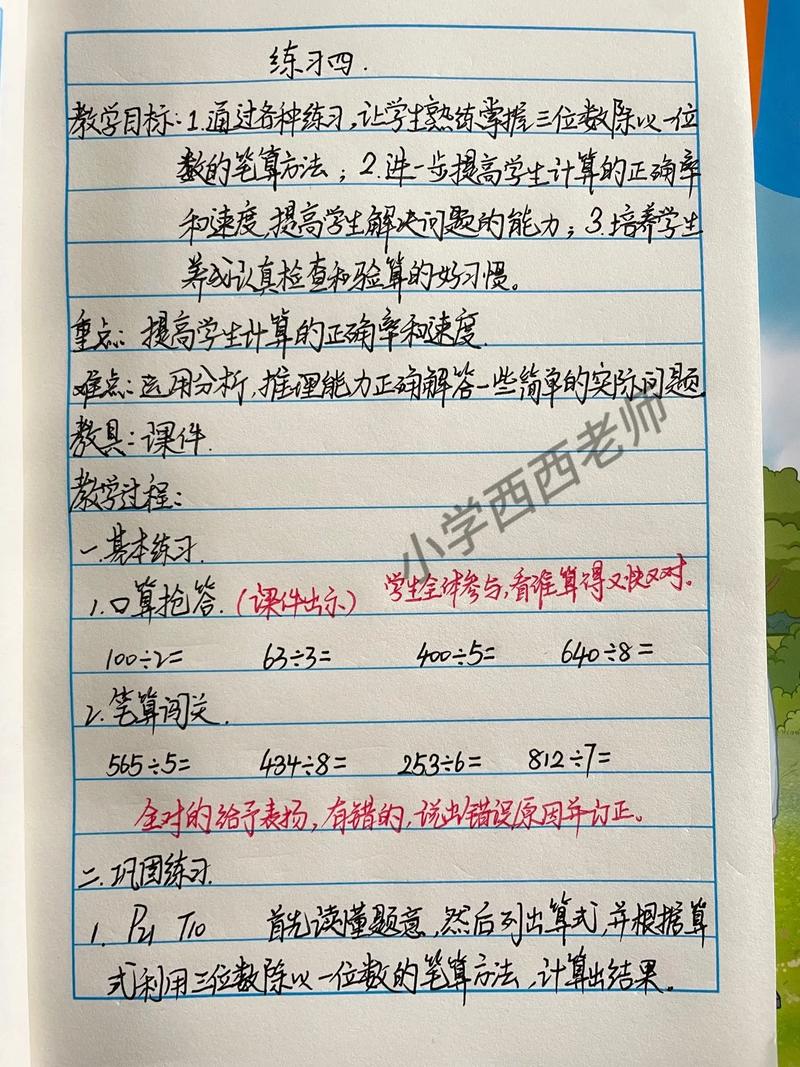 练习四.
教学目标:1.通过各种练习,让学生熟练掌握三位数除以一位
数的笔算方法;2.进一步提高学生计算的正确率
和速度,提高学生解决问题的能力;3.培养学生
养成认真检查和验算的好习惯。
重点:提高学生计算的正确率和速度.
难点:运用分析,推理能力正确解答一些简单的实际问题
教具:课件.
教学过程:
一.基本练习.
1.口算抢答.(课件出示) 学生全体参与,看谁算得又快又对。
100÷2= 63÷3= 400÷5= 640÷8=
2.笔算闯关.
565÷5= 434÷8= 253÷6= 812÷7=
全对的给予表扬,有错的,说出错误原因并订正。
二.巩固练习.
1. P21 T10 首先读懂题意,然后列出算式,并根据算
式利用三位数除以一位数的笔算方法,计算出结果。
小学西西老师